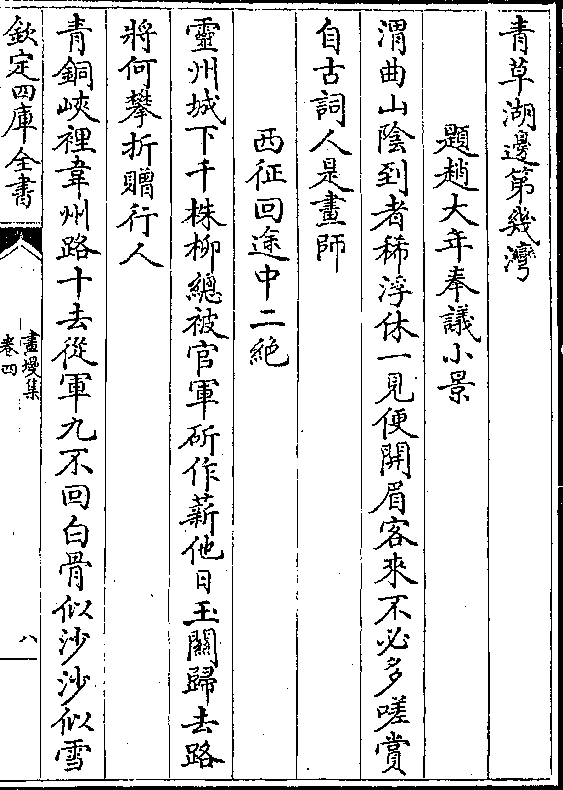 青草湖邊第幾灣
題趙大年奉議小景
渭曲山陰到者稀浮休一見便開眉客來不必多嗟賞
自古詞人是畫師
西征回途中二絶
靈州城下千株柳總被官軍斫作薪他日玉關歸去路
將何攀折贈行人
青銅峽裡韋州路十去從軍九不回白骨似沙沙似雪
欽定四庫全書
畫墁集
卷四
八